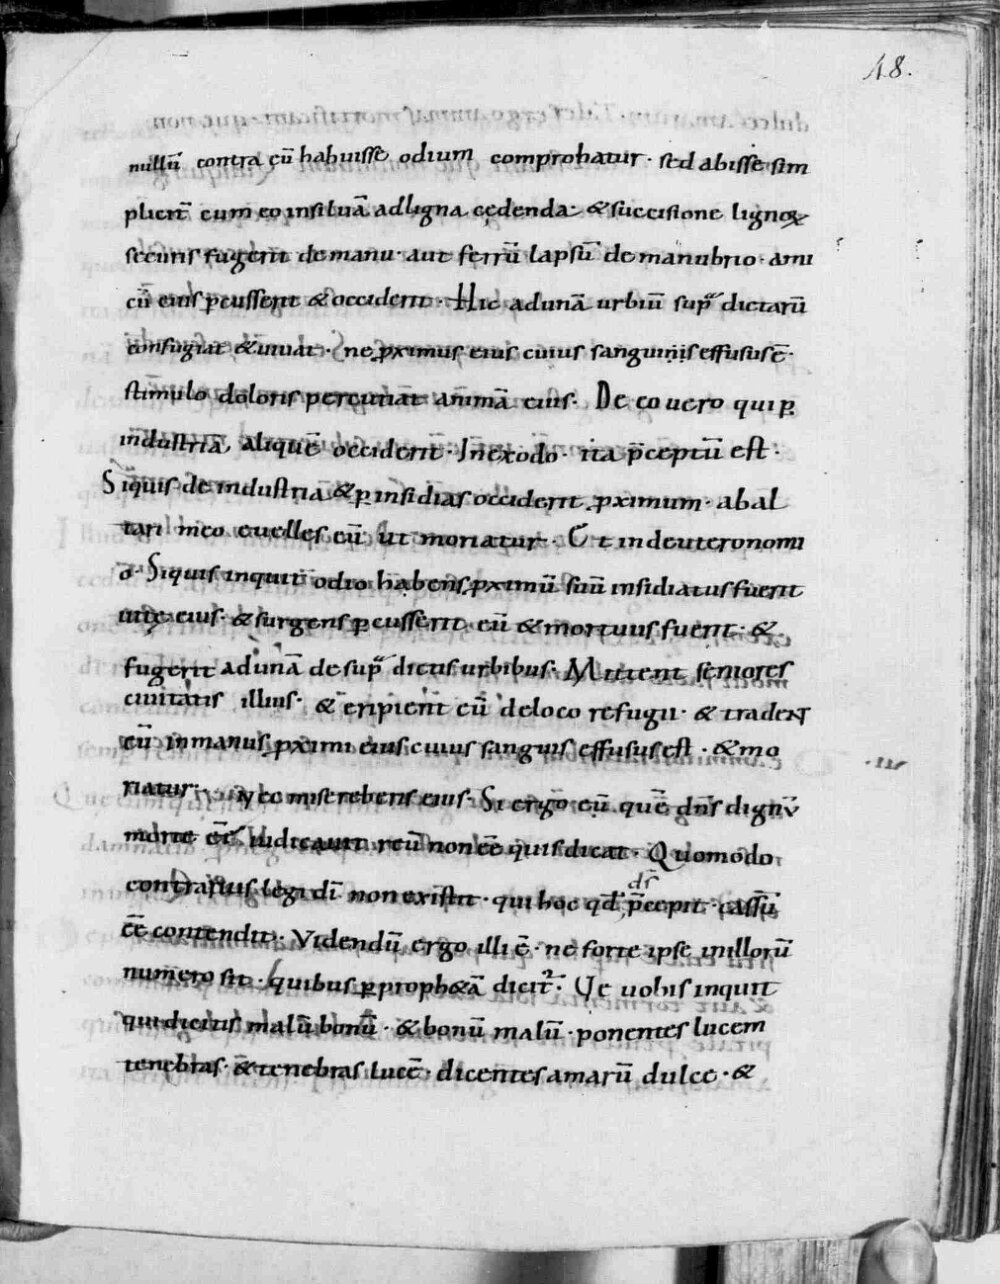 48.
nullū contra eū habuisse odium comprobatur · sed abisse sim
plicit̄ cum eo insiluā adligna cędenda · & succisione lignoꝝ
securis fugerit de manu · aut ferrū lapsū de manubrio · ami
cū eius ꝑcusserit & occiderit · Hic adunā urbiū sup̄ dictarū
confugiat & uiuat · ne ꝓximus eius cuius sanguinis effusus ē ·
stimulo doloris percutiat animā eius · De eo uero qui ꝑ
industriā aliquē occiderit · Inexodo · ita p̄ceptū est ·
Siquis de industria & ꝑ insidias occiderit ꝓximum · ab al
tari meo euelles eū ut moriatur · Et indeuteronomi
o · Siquis inquit odio habens ꝓximū suū insidiatus fuerit
uitę eius · & surgens ꝑcusserit eū & mortuus fuerit · &
fugerit adunā de sup̄ dictis urbibus · Mittent seniores
ciuitatis illius · & eripient eū deloco refugii · & tradent
eū inmanus ꝓximi eius cuius sanguis effusus est · & mo
riatur · Nec misereberis eius · Si ergo eū quē dn̄s dignū
morte ēē iudicauit reū non ēē quis dicat · Quomodo
contrarius legi dī non existit · qui hoc qd̄ dn̄s p̄cepit cassū
ēē contendit · Videndū ergo illi ē · ne forte ipse inillorū
numero sit · quibus ꝑ proph&ā dicit̄ · Ve uobis inquit
qui dicitis malū bonū · & bonū malū · ponentes lucem
tenebras · & tenebras lucē · dicentes amarū dulce · &